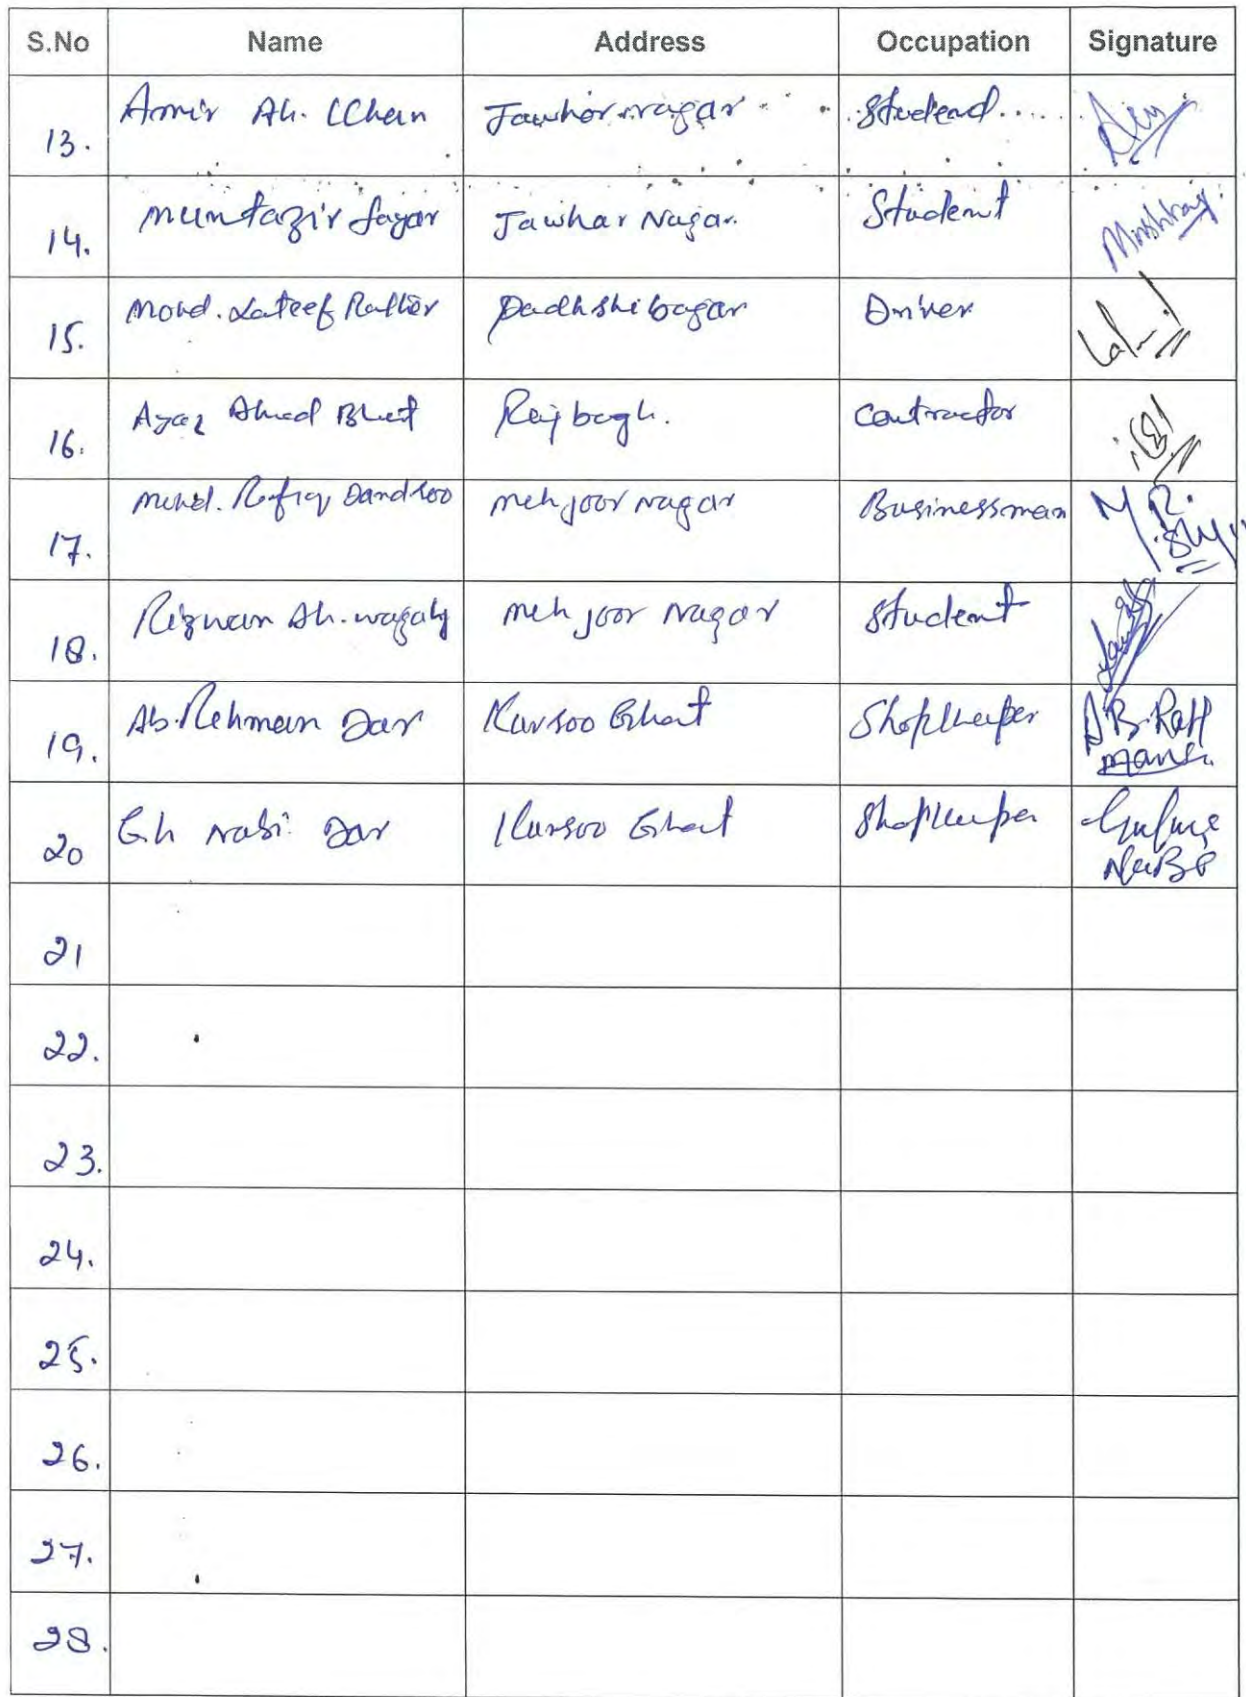 S.No Name Address Occupation Signature
13. Amir Ah. Khan Jawhar nagar Student
14. Muntazir Sagar Jawhar Nagar. Student
15. Mohd. Lateef Rather Padhshibagar Driver
16. Ayaz Ahmad Bhat Rajbagh. Contractor
17. Mohd. Rafiq Dandloo mehjoor nagar Businessman M R.
18. Rizwan Ah. wagay meh joor Nagar Student
19. Ab. Rehman Dar Kursoo Ghat Shopkeeper AB. Reh
man
20 Gh Nabi Dar Kursoo Ghat Shopkeeper
NaBi
21
22.
23.
24.
25.
26.
27.
28.